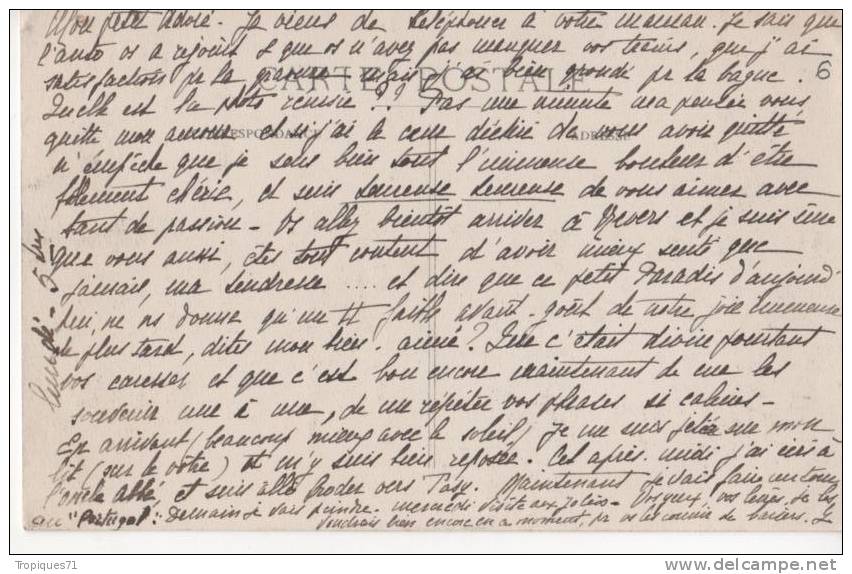 Mon petit Adoré. Je viens de téléphoner à votre maman. Je sais que
l'auto vs a rejoint & que vs n'avez pas manquer vos trains, que j'ai
satisfaction pr la mais j'ai bien grondé pr la bague.
CARTE POSTALE
6
Quelle est la photo remise?? Pas une minute ma pensée vous
quitte mon amour et si j'ai le cœur déchiré de vous avoir quitté
CORRESPONDANCE
ADRESSE
n'empêche que je sens bien tout l'immense bonheur d'être
follement chérie, et suis heureuse heureuse de vous aimer avec
tant de passion - Vs allez bientôt arriver à Nevers et je suis sûre
que vous aussi, êtes tout content d'avoir mieux senti que
jamais, ma tendresse .... et dire que ce petit Paradis d'aujourd
hui, ne ns donne qu'un tt faible avant-goût de notre joie
de plus tard, dites mon bien-aimé? Que c'était divin pourtant
vos caresses et que c'est bon encore maintenant de me les
souvenir une à une, de me répéter vos phrases si calines -
En arrivant (beaucoup mieux avec le soleil) je me suis jetée sur mon
lit (sur le vôtre) et m'y suis bien reposée. Cet après-midi j'ai écris à
l'oncle abbé, et suis allée broder vers Maintenant je vais faire un tour
au "Portugal". Demain je vais peindre. mercredi visite aux
Voudrais bien encore en ce moment, pr vs les couvrir de baisers. J
lundi - 5 hrs
Tropiques71